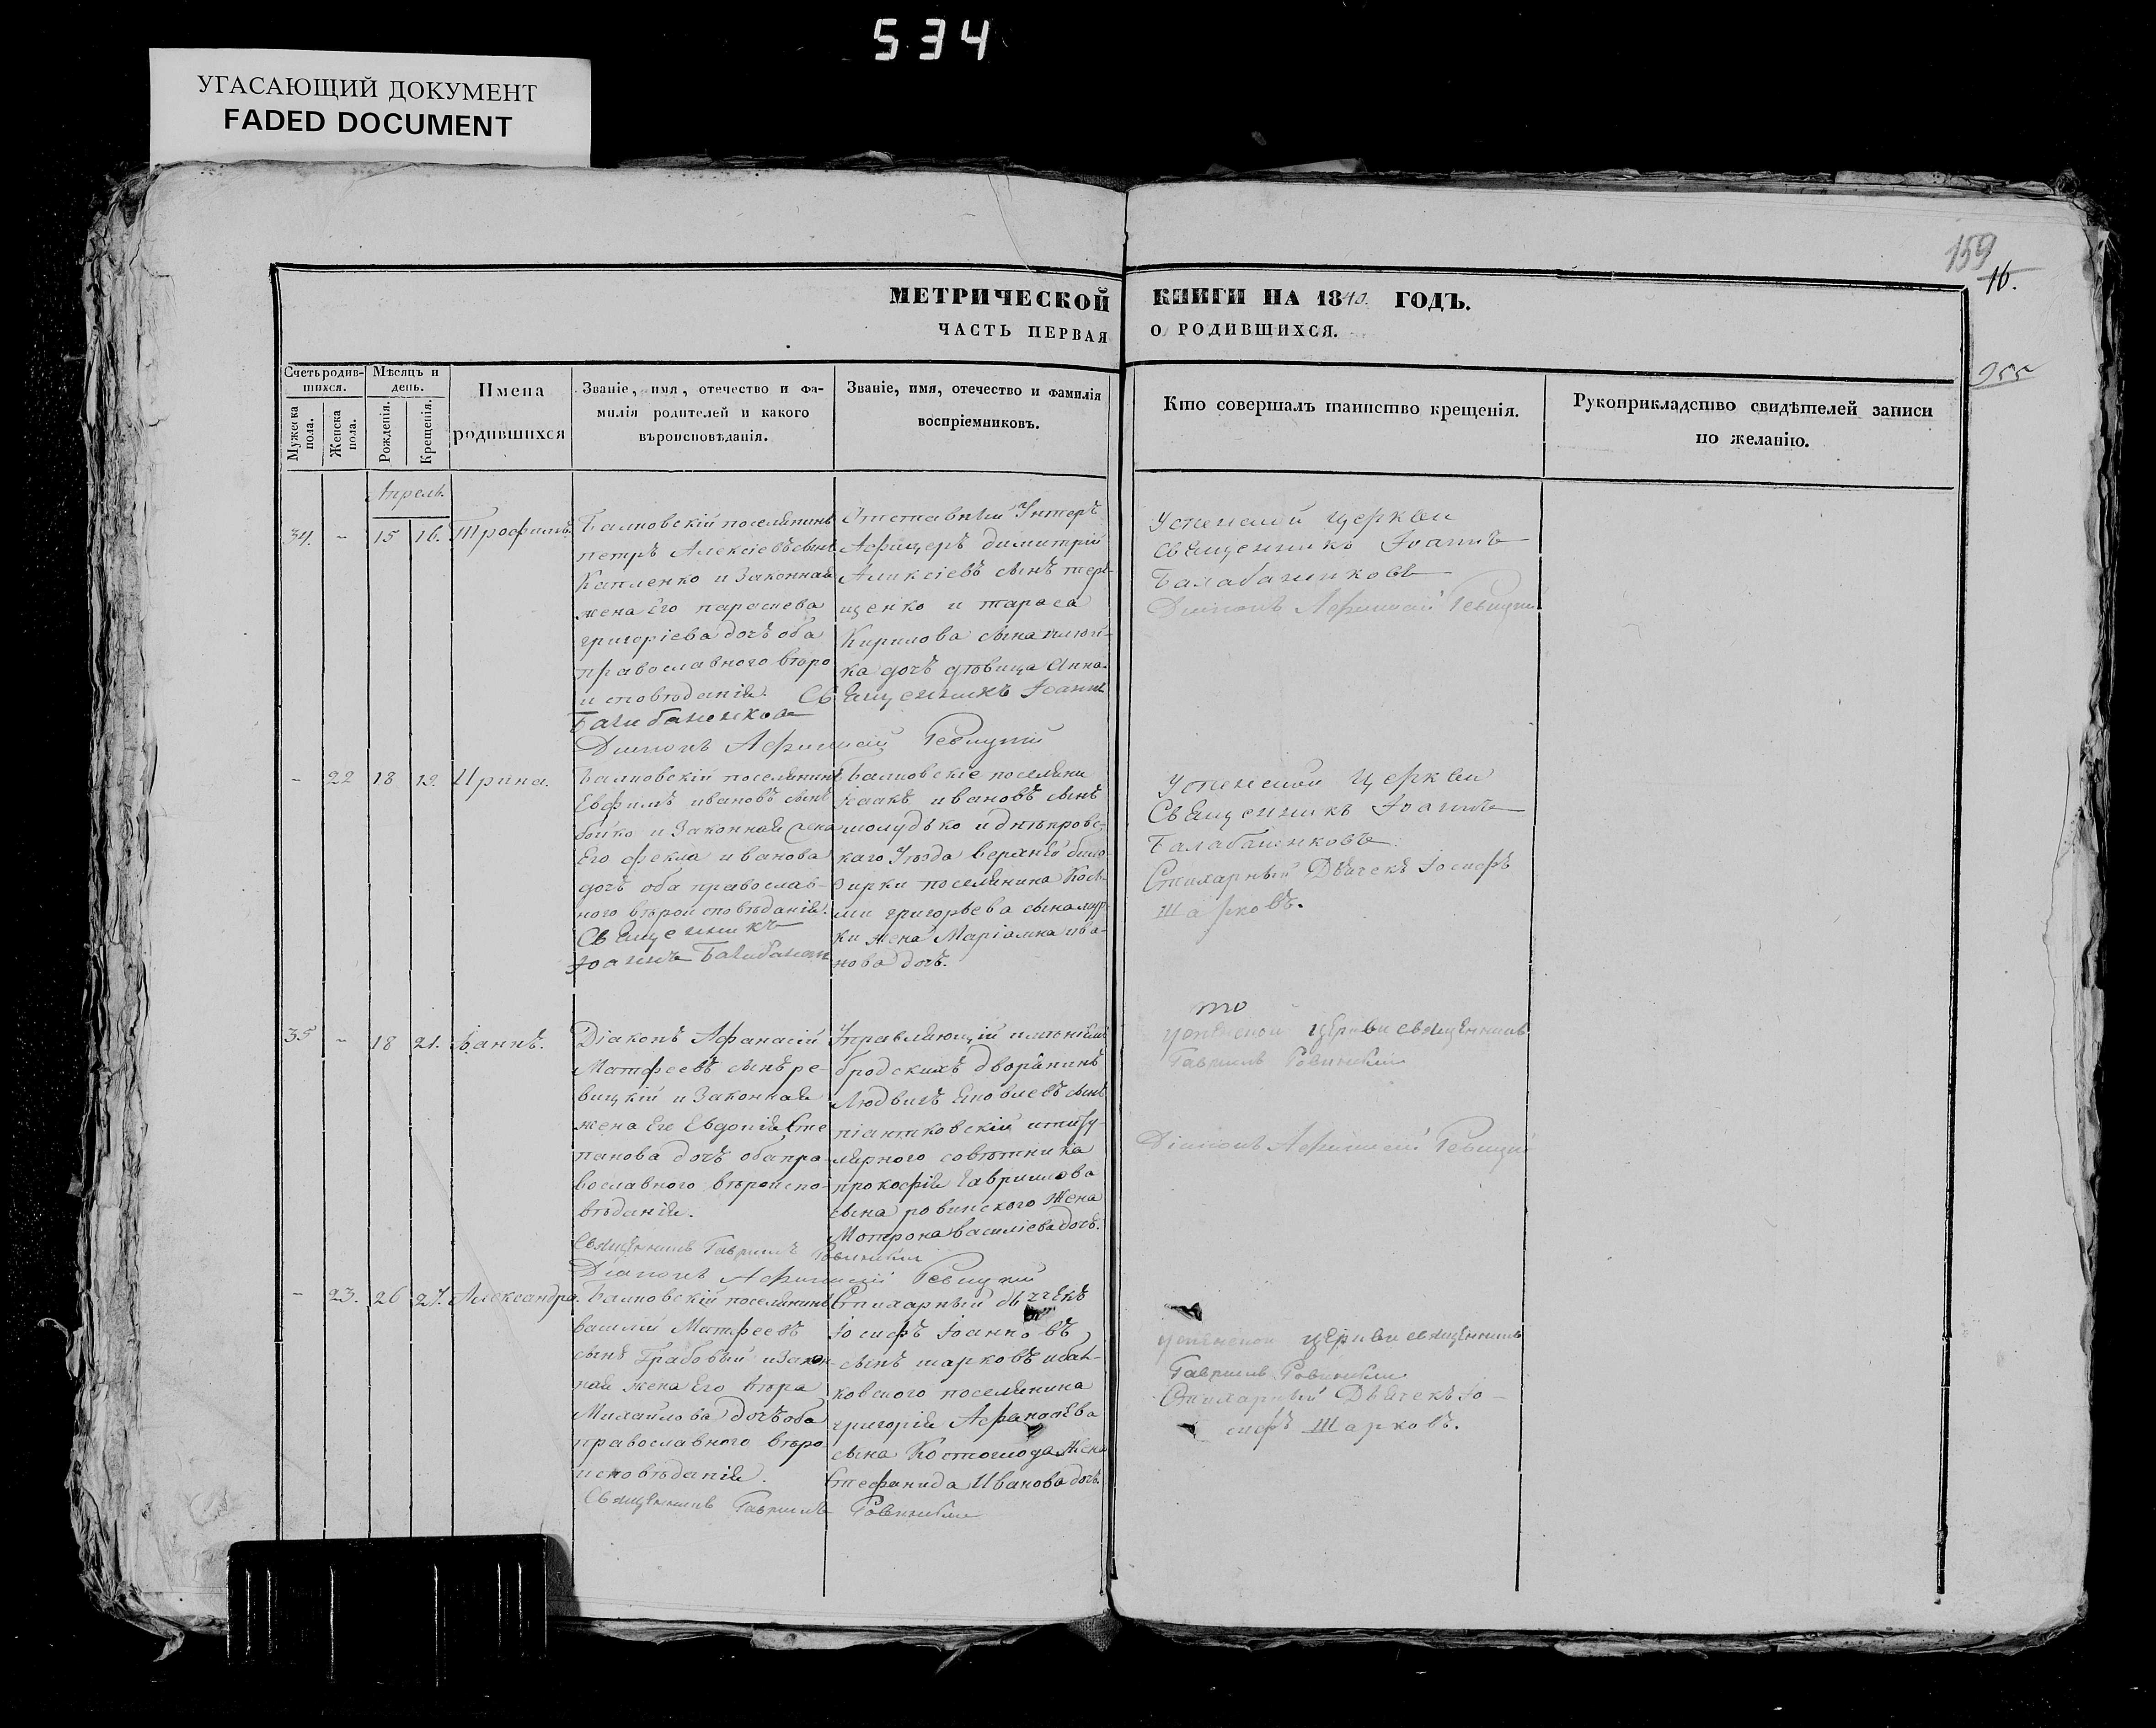 534
УГАСАЮЩИЙ ДОКУМЕНТ
FADED DOCUMENT
159
16.
МЕТРИЧЕСКОЙ КНИГИ НА 1840. ГОДЪ.
ЧАСТЬ ПЕРВАЯ О РОДИВШИХСЯ.
955
Счетъ родив-
шихся.
Мужеска пола.
Женска пола.
Мѣсяцъ и день.
Рожденія.
Крещенія.
Имена
родившихся
Званіе, имя, отечество и фа-
милія родителей и какого
вѣроисповѣданія.
Званіе, имя, отечество и фамилія
воспріемниковъ.
Кто совершалъ таинство крещенія.
Рукоприкладство свидѣтелей записи
по желанію.
Апрель.
34. - 15 16. Трофимъ.
Балковскій поселянинъ
петръ Алексіевъ сынъ
Капленко и Законная
жена Его параскева
григоріева дочь оба
православного вѣро
исповѣданія.
Отставный Унтеръ
Афицеръ димитрій
Аликсіевъ сынъ тере-
щенко и тараса
Кирилова сына
ка дочь дѣвица Анна.
Священникъ Іоаннъ
Балабаненковъ
Діаконъ Афанасій Ревицкій
Успенской церкви
Священникъ Іоаннъ
Балабаненковъ
Діаконъ Афанасій Ревицкій
- 22 18 19. Ирина.
Балковскій поселянинъ
Евфимъ ивановъ сынъ
бойко и Законная жена
Его фекла иванова
дочь оба православ-
ного вѣроисповѣданія.
Священникъ
Іоаннъ Балабаненковъ
Балковскіе поселяни
Ісаакъ ивановъ сынъ
шолудько и днѣпровс-
каго Уѣзда верхней било-
зирки поселянина Кось-
ми григорьева сына
ки жена Маріамна ива-
нова дочь.
Успенской Церкви
Священникъ Іоаннъ
Балабаненковъ
Стихарный Дьячекъ Іосифъ
Шарковъ.
35 - 18 21. Іоаннъ.
Діаконъ Афанасій
Матфеевъ сынъ ре-
вицкій и Законная
жена Его Евдокія Сте
панова дочь оба пра-
вославного вѣроиспо-
вѣданія.
Управляющій имѣніемъ
бродскихъ дворянинъ
Людвигъ Яковлевъ сынъ
піантковскій и титу-
лярного совѣтника
прокофія Гавриилова
сына ровинского жена
Мотрона василіева дочь.
Священникъ Гавриилъ Ровинскій
Діаконъ Афанасій Ревицкій
то
Успенской Церкви священникъ
Гавриилъ Ровинскій
Діаконъ Афанасій Ревицкій
- 23. 26 27. Александра.
Балковскій поселянинъ
василій Матфеевъ
сынъ Грабовый и Закон-
ная жена Его вѣра
Михайлова дочь оба
православного вѣро
исповѣданія.
Стихарный дьячекъ
Іосифъ Іоанновъ
сынъ шарковъ и бал-
ковского поселянина
григорія Афанасьева
сына Костоглода жена
Стефанида Иванова дочь.
Священникъ Гавриилъ Ровинскій
Успенской церкви священникъ
Гавриилъ Ровинскій
Стихарный Дьячекъ Іо-
сифъ Шарковъ.